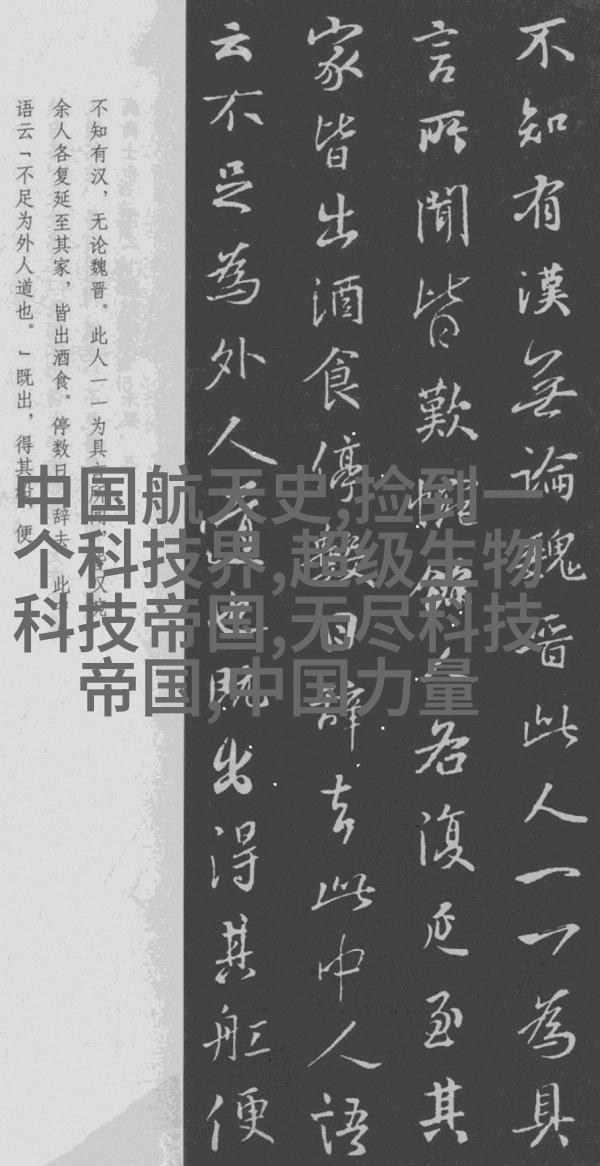 不知有漢無論魏晋此人一一為具
言所聞皆歎惋餘人各復延至其
家皆出酒食停數日辞去此中人語
云不足為外人道也既出得其舡便
不知有汉，无论魏晋。此人一一为具
余人各复延至其家，皆出酒食。停数日，辞去。此
语云「不足为外人道也。」既出，得其船，便
中国航天史,捡到一
个科技界,超级生物
科技帝国,无尽科技
帝国,中国力量